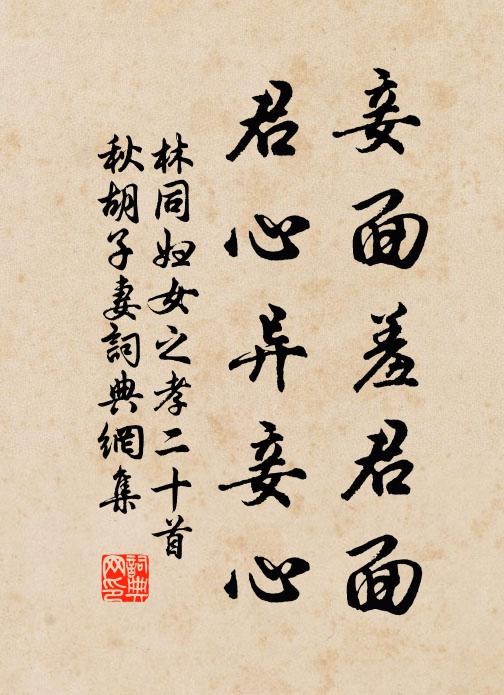 妾面羞君面
君心异妾心
林同妇女之孝二十首
秋胡子妻詞典網集
詞典
网印